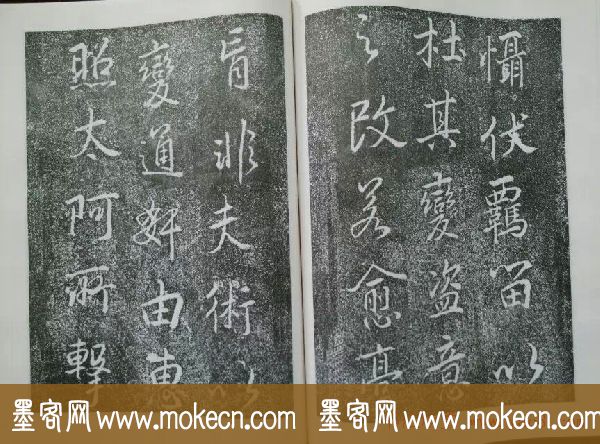 懾伏羈留以
杜其變盗意
之改若愈膏
肓非夫術以
變通奸由惠
照太阿所擊
墨客网 www.mokecn.com 墨客网 www.mokecn.com